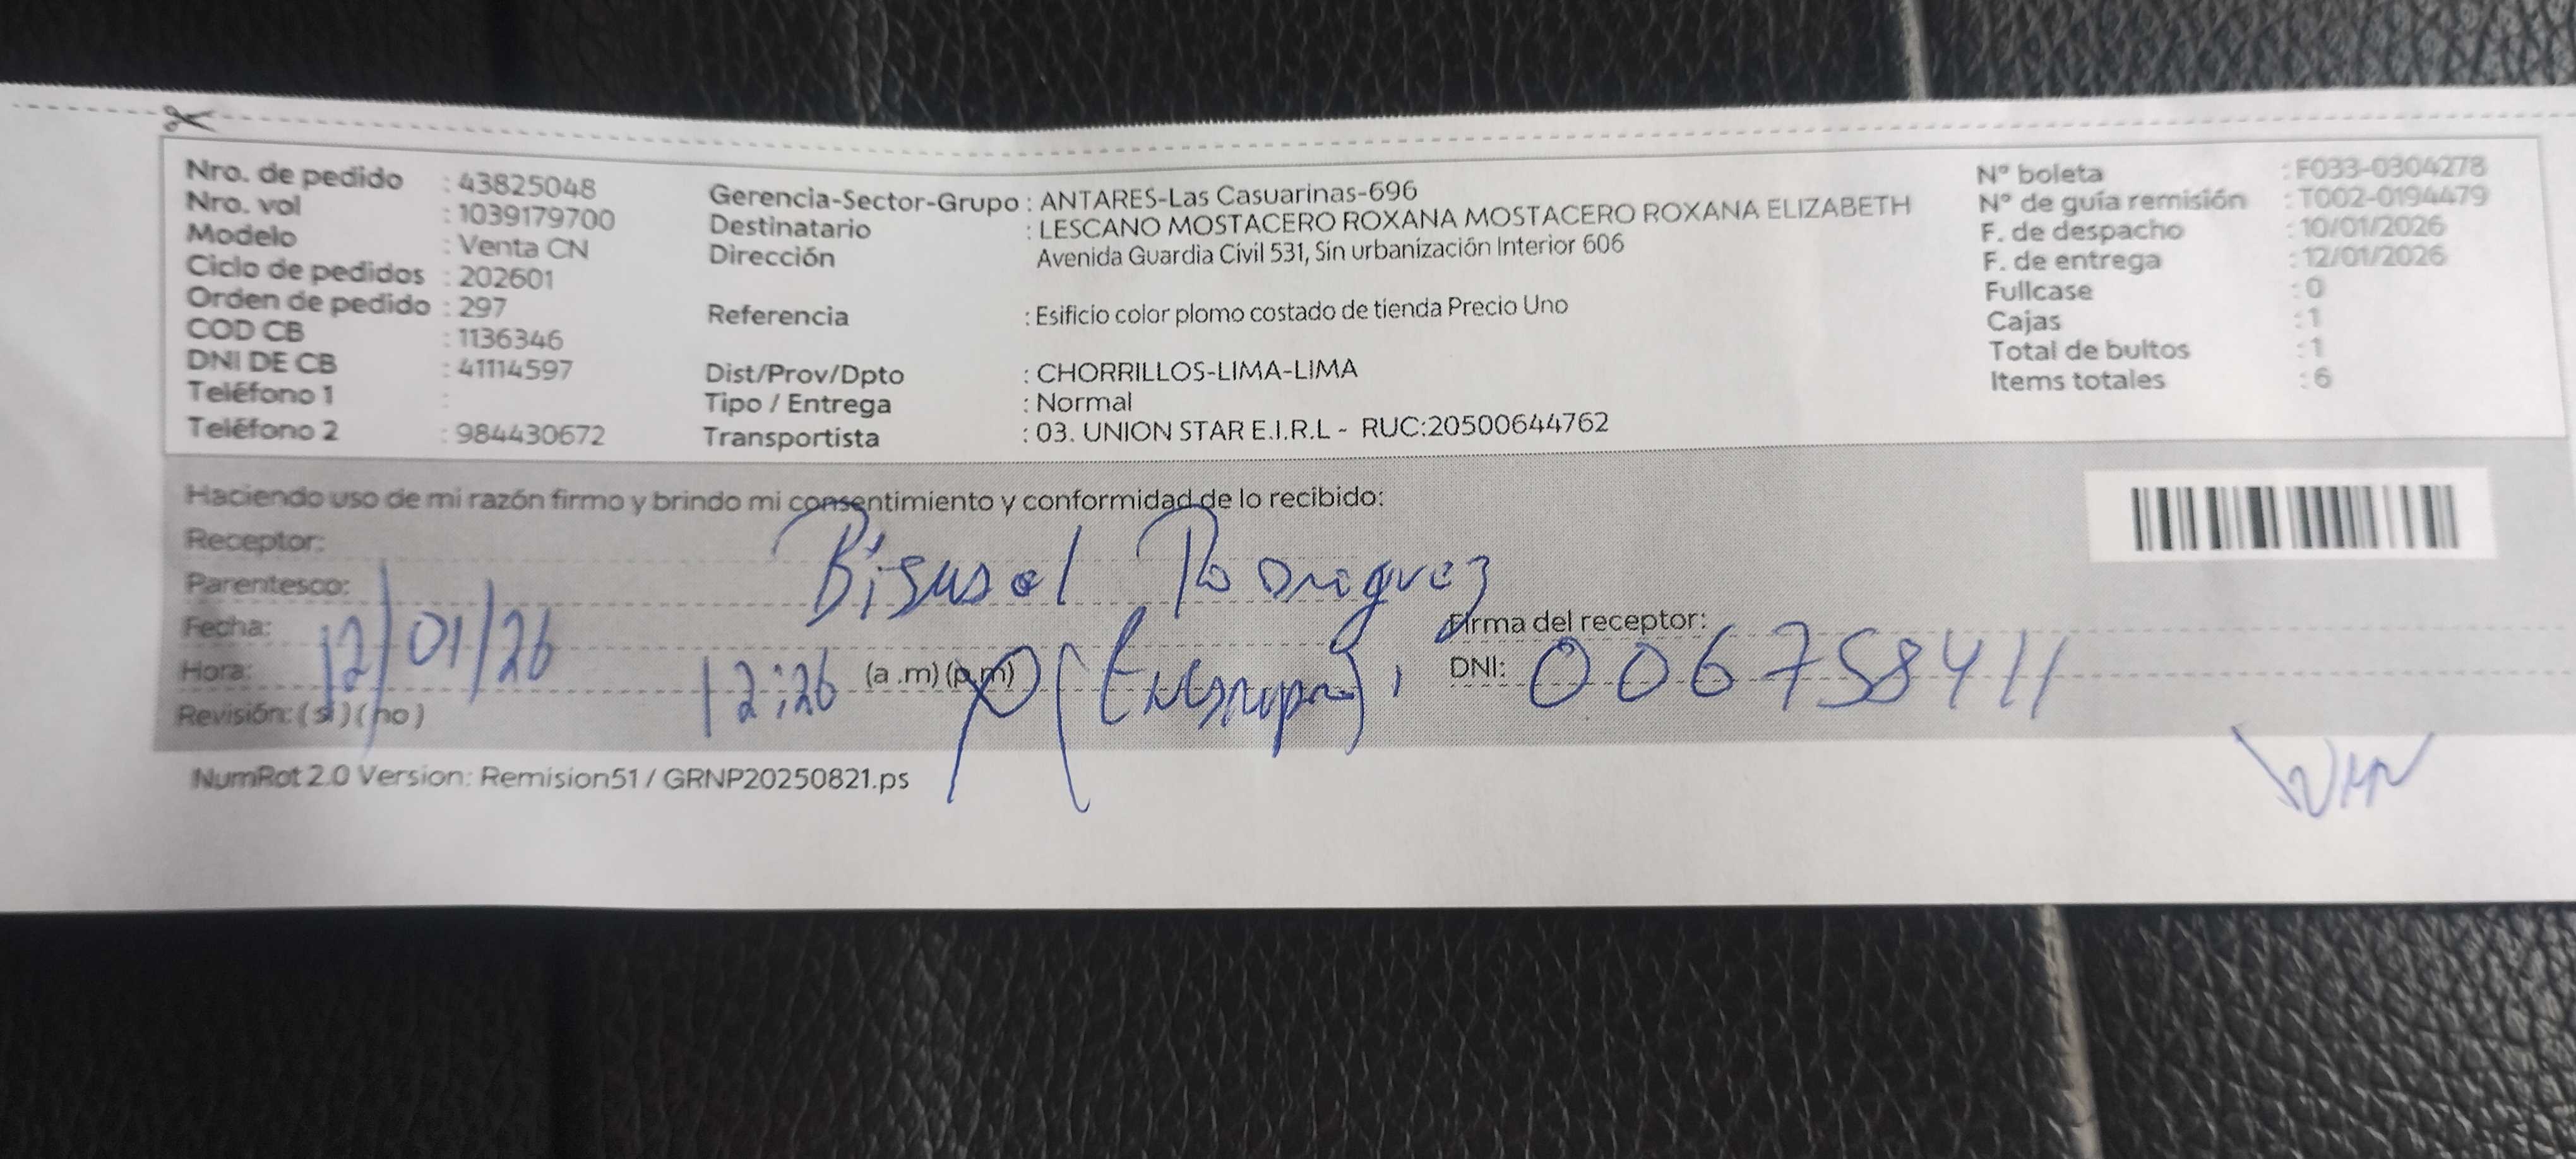 Nro. de pedido : 43825048
Nro. vol : 1039179700
Modelo : Venta CN
Ciclo de pedidos : 202601
Orden de pedido : 297
COD CB : 1136346
DNI DE CB : 41114597
Teléfono 1 :
Teléfono 2 : 984430672
Gerencia-Sector-Grupo : ANTARES-Las Casuarinas-696
Destinatario : LESCANO MOSTACERO ROXANA MOSTACERO ROXANA ELIZABETH
Dirección Avenida Guardia Civil 531, Sin urbanización Interior 606
Referencia : Esificio color plomo costado de tienda Precio Uno
Dist/Prov/Dpto : CHORRILLOS-LIMA-LIMA
Tipo / Entrega : Normal
Transportista : 03. UNION STAR E.I.R.L - RUC:20500644762
Nº boleta : F033-0304278
Nº de guía remisión : T002-0194479
F. de despacho : 10/01/2026
F. de entrega : 12/01/2026
Fullcase : 0
Cajas : 1
Total de bultos : 1
Items totales : 6
Haciendo uso de mi razón firmo y brindo mi consentimiento y conformidad de lo recibido:
Receptor:
Rodriguez
Parentesco:
Fecha: 12/01/26
Firma del receptor:
Hora: 12:26 (a .m) (p.m)
DNI: 006758411
Revisión: ( si ) ( no )
NumRot 2.0 Version: Remision51 / GRNP20250821.ps